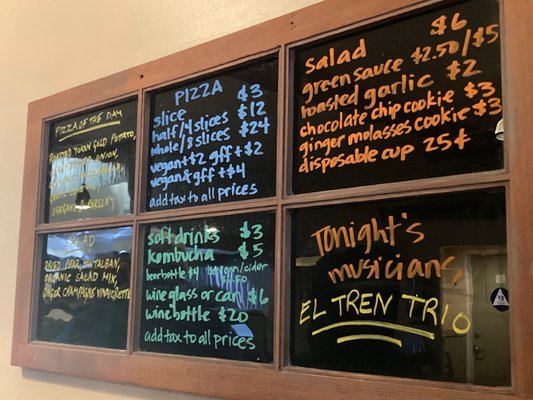 PIZZA OF THE DAY
ROASTED YUKON GOLD POTATO,
ONION,
OREGANO & PARSLEY
PIZZA
slice $3
half/4 slices $12
whole/8 slices $24
vegan+$2 gff+$2
vegan&gff+$4
add tax to all prices
salad $6
green sauce $2.50/$5
roasted garlic $2
chocolate chip cookie $3
ginger molasses cookie $3
disposable cup 25¢
DRIED PEAR,
ORGANIC SALAD MIX,
GINGER CHAMPAGNE VINAIGRETTE
soft drinks $3
kombucha $5
beer bottle $4
wine glass or can $6
wine bottle $20
add tax to all prices
Tonight's
musicians
EL TREN TRIO